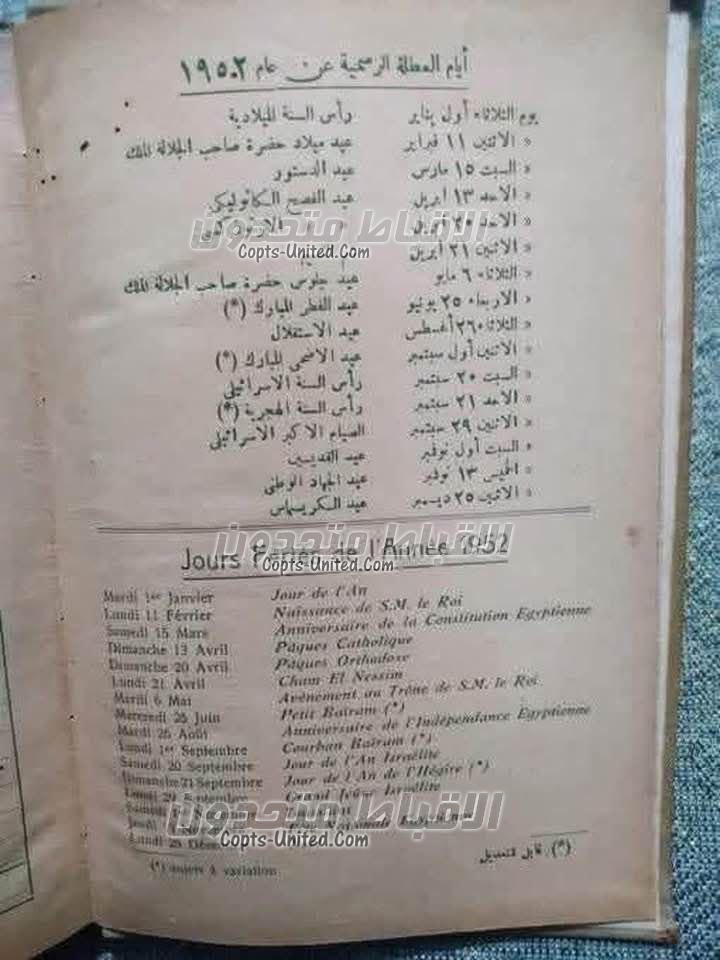 أيام العطلة الرسمية عن عام ١٩٥٢
يوم الثلاثاء أول يناير رأس السنة الميلادية
« الاثنين ١١ فبراير عيد ميلاد حضرة صاحب الجلالة الملك
« السبت ١٥ مارس عيد الدستور
« الاحد ١٣ أبريل عيد الفصح الكاثوليكي
« الاحد ٢٠ أبريل الارثوذكسي
الاقباط متحدون
Copts-United.Com
« الاثنين ٢١ أبريل
« الثلاثاء ٦ مايو عيد جلوس حضرة صاحب الجلالة الملك
« الاربعاء ٢٥ يونيو عيد الفطر المبارك (*)
« الثلاثاء ٢٦ أغسطس عيد الاستقلال
« الاثنين أول سبتمبر عيد الاضحى المبارك (*)
الاقباط متحدون
Copts-United.Com
« السبت ٢٠ سبتمبر رأس السنة الاسرائيلي
« الاحد ٢١ سبتمبر رأس السنة الهجرية (*)
« الاثنين ٢٩ سبتمبر الصيام الاكبر الاسرائيلي
« السبت أول نوفمبر عيد القديسين
« الخميس ١٣ نوفمبر عيد الجهاد الوطنى
« الاثنين ٢٥ ديسمبر عيد الكريسماس
الاقباط متحدون
Copts-United.Com
Jours Feries de l'Année 1952
Mardi 1er Janvier Jour de l'An
Lundi 11 Février Naissance de S.M. le Roi
Samedi 15 Mars Anniversaire de la Constitution Egyptienne
Dimanche 13 Avril Pâques Catholique
Dimanche 20 Avril Pâques Orthodoxe
Lundi 21 Avril Cham El Nessim
Mardi 6 Mai Avènement au Trône de S.M. le Roi
Mercredi 25 Juin Petit Baïram (*)
Mardi 26 Août Anniversaire de l'Indépendance Egyptienne
Lundi 1er Septembre Courban Baïram (*)
Samedi 20 Septembre Jour de l'An Israélite
Dimanche 21 Septembre Jour de l'An de l'Hégire (*)
Lundi 29 Septembre Grand Jeûne Israélite
الاقباط متحدون
Copts-United.Com
(*) sujets à variation
(*) قابل للتعديل